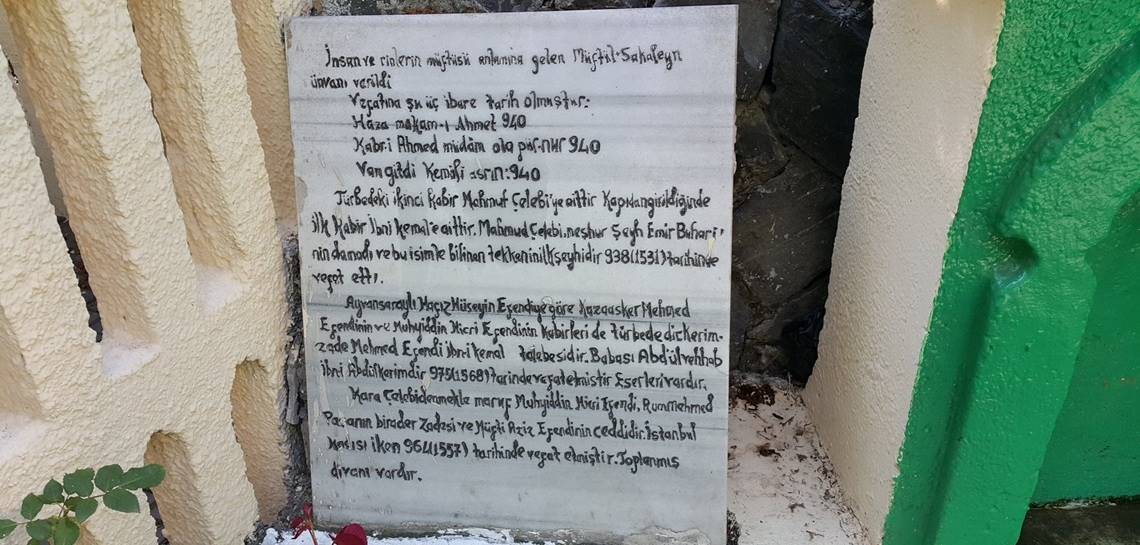 İnsan ve cinlerin müftüsü anlamına gelen Müftül-Sakaleyn
ünvanı verildi
Vefatına şu üç ibare tarih olmuştur:
Haza makam-ı Ahmet 940
Kabr-i Ahmed müdâm ola pür-nur 940
Van gitdi Kemâli asrın: 940
Türbedeki ikinci Kabir Mahmut Çelebi'ye aittir Kapıdan girildiğinde
ilk Kabir İbni kemal'e aittir. Mahmud Çelebi, meşhur Şeyh Emir Buhari'
nin damadı ve bu isimle bilinan tekkenin ilk şeyhidir 938(1531) tarihinde
vefat etti.
Ayvansaraylı Hafız Hüseyin Efendiye göre Kazaasker Mehmed
Efendinin ve Muhyiddin Hicri Efendinin Kabirleri de türbededir. Kerim-
zade Mehmed Efendi ibni kemal talebesidir. Babası Abdülvehhab
ibni Abdülkerimdir 975(1568) tarinde vefat etmiştir Eserleri vardır.
Kara Çelebi denmekle maruf Muhyiddin Hicri Efendi, Rum mehmed
Paşanın birader Zadesi ve Müfti Aziz Efendinin ceddidir. İstanbul
Kadısı iken 964(1557) tarihinde vefat etmiştir. Toplanmış
divanı vardır.